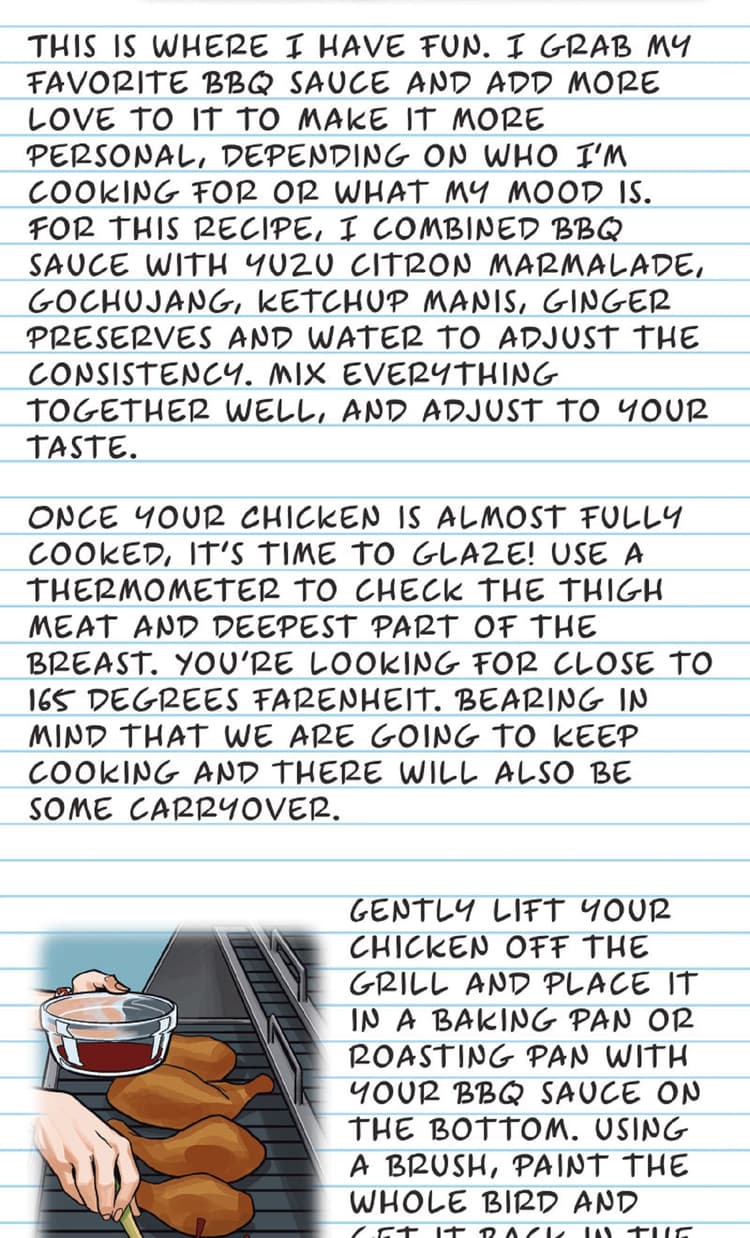 THIS IS WHERE I HAVE FUN. I GRAB MY
FAVORITE BBQ SAUCE AND ADD MORE
LOVE TO IT TO MAKE IT MORE
PERSONAL, DEPENDING ON WHO I'M
COOKING FOR OR WHAT MY MOOD IS.
FOR THIS RECIPE, I COMBINED BBQ
SAUCE WITH YUZU CITRON MARMALADE,
GOCHUJANG, KETCHUP MANIS, GINGER
PRESERVES AND WATER TO ADJUST THE
CONSISTENCY. MIX EVERYTHING
TOGETHER WELL, AND ADJUST TO YOUR
TASTE.
ONCE YOUR CHICKEN IS ALMOST FULLY
COOKED, IT'S TIME TO GLAZE! USE A
THERMOMETER TO CHECK THE THIGH
MEAT AND DEEPEST PART OF THE
BREAST. YOU'RE LOOKING FOR CLOSE TO
165 DEGREES FARENHEIT. BEARING IN
MIND THAT WE ARE GOING TO KEEP
COOKING AND THERE WILL ALSO BE
SOME CARRYOVER.
GENTLY LIFT YOUR
CHICKEN OFF THE
GRILL AND PLACE IT
IN A BAKING PAN OR
ROASTING PAN WITH
YOUR BBQ SAUCE ON
THE BOTTOM. USING
A BRUSH, PAINT THE
WHOLE BIRD AND
GET IT BACK IN THE